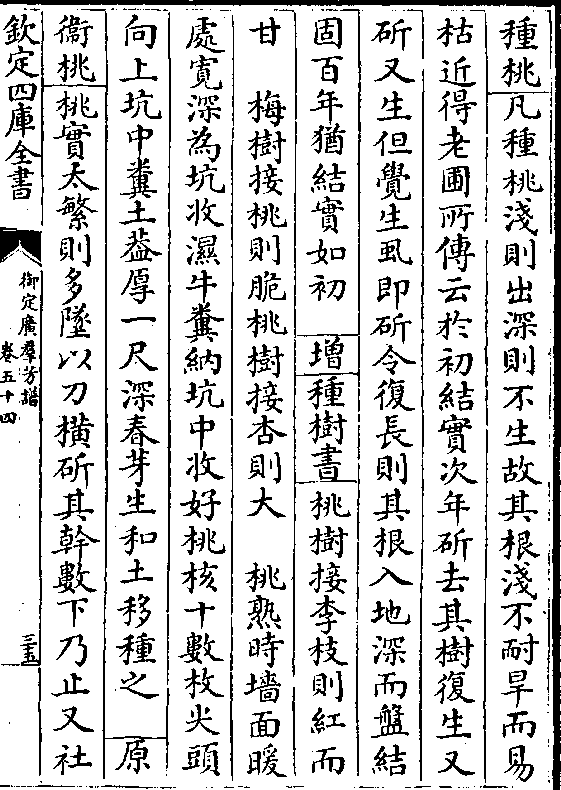 種桃凡種桃淺則出深則不生故其根淺不耐旱而易
枯近得老圃所傳云於初結實次年斫去其樹復生又
斫又生但覺生虱即斫令復長則其根入地深而盤結
固百年猶結實如初 增種樹書桃樹接李枝則紅而
甘 梅樹接桃則脆桃樹接杏則大 桃熟時墻面暖
處寛深為坑收濕牛糞納坑中收好桃核十數枚尖頭
向上坑中糞土葢厚一尺深春芽生和土移種之 原
衞桃桃實太繁則多墜以刀橫斫其幹數下乃止又社
欽定四庫全書
御定廣羣芳譜
卷五十四
三五